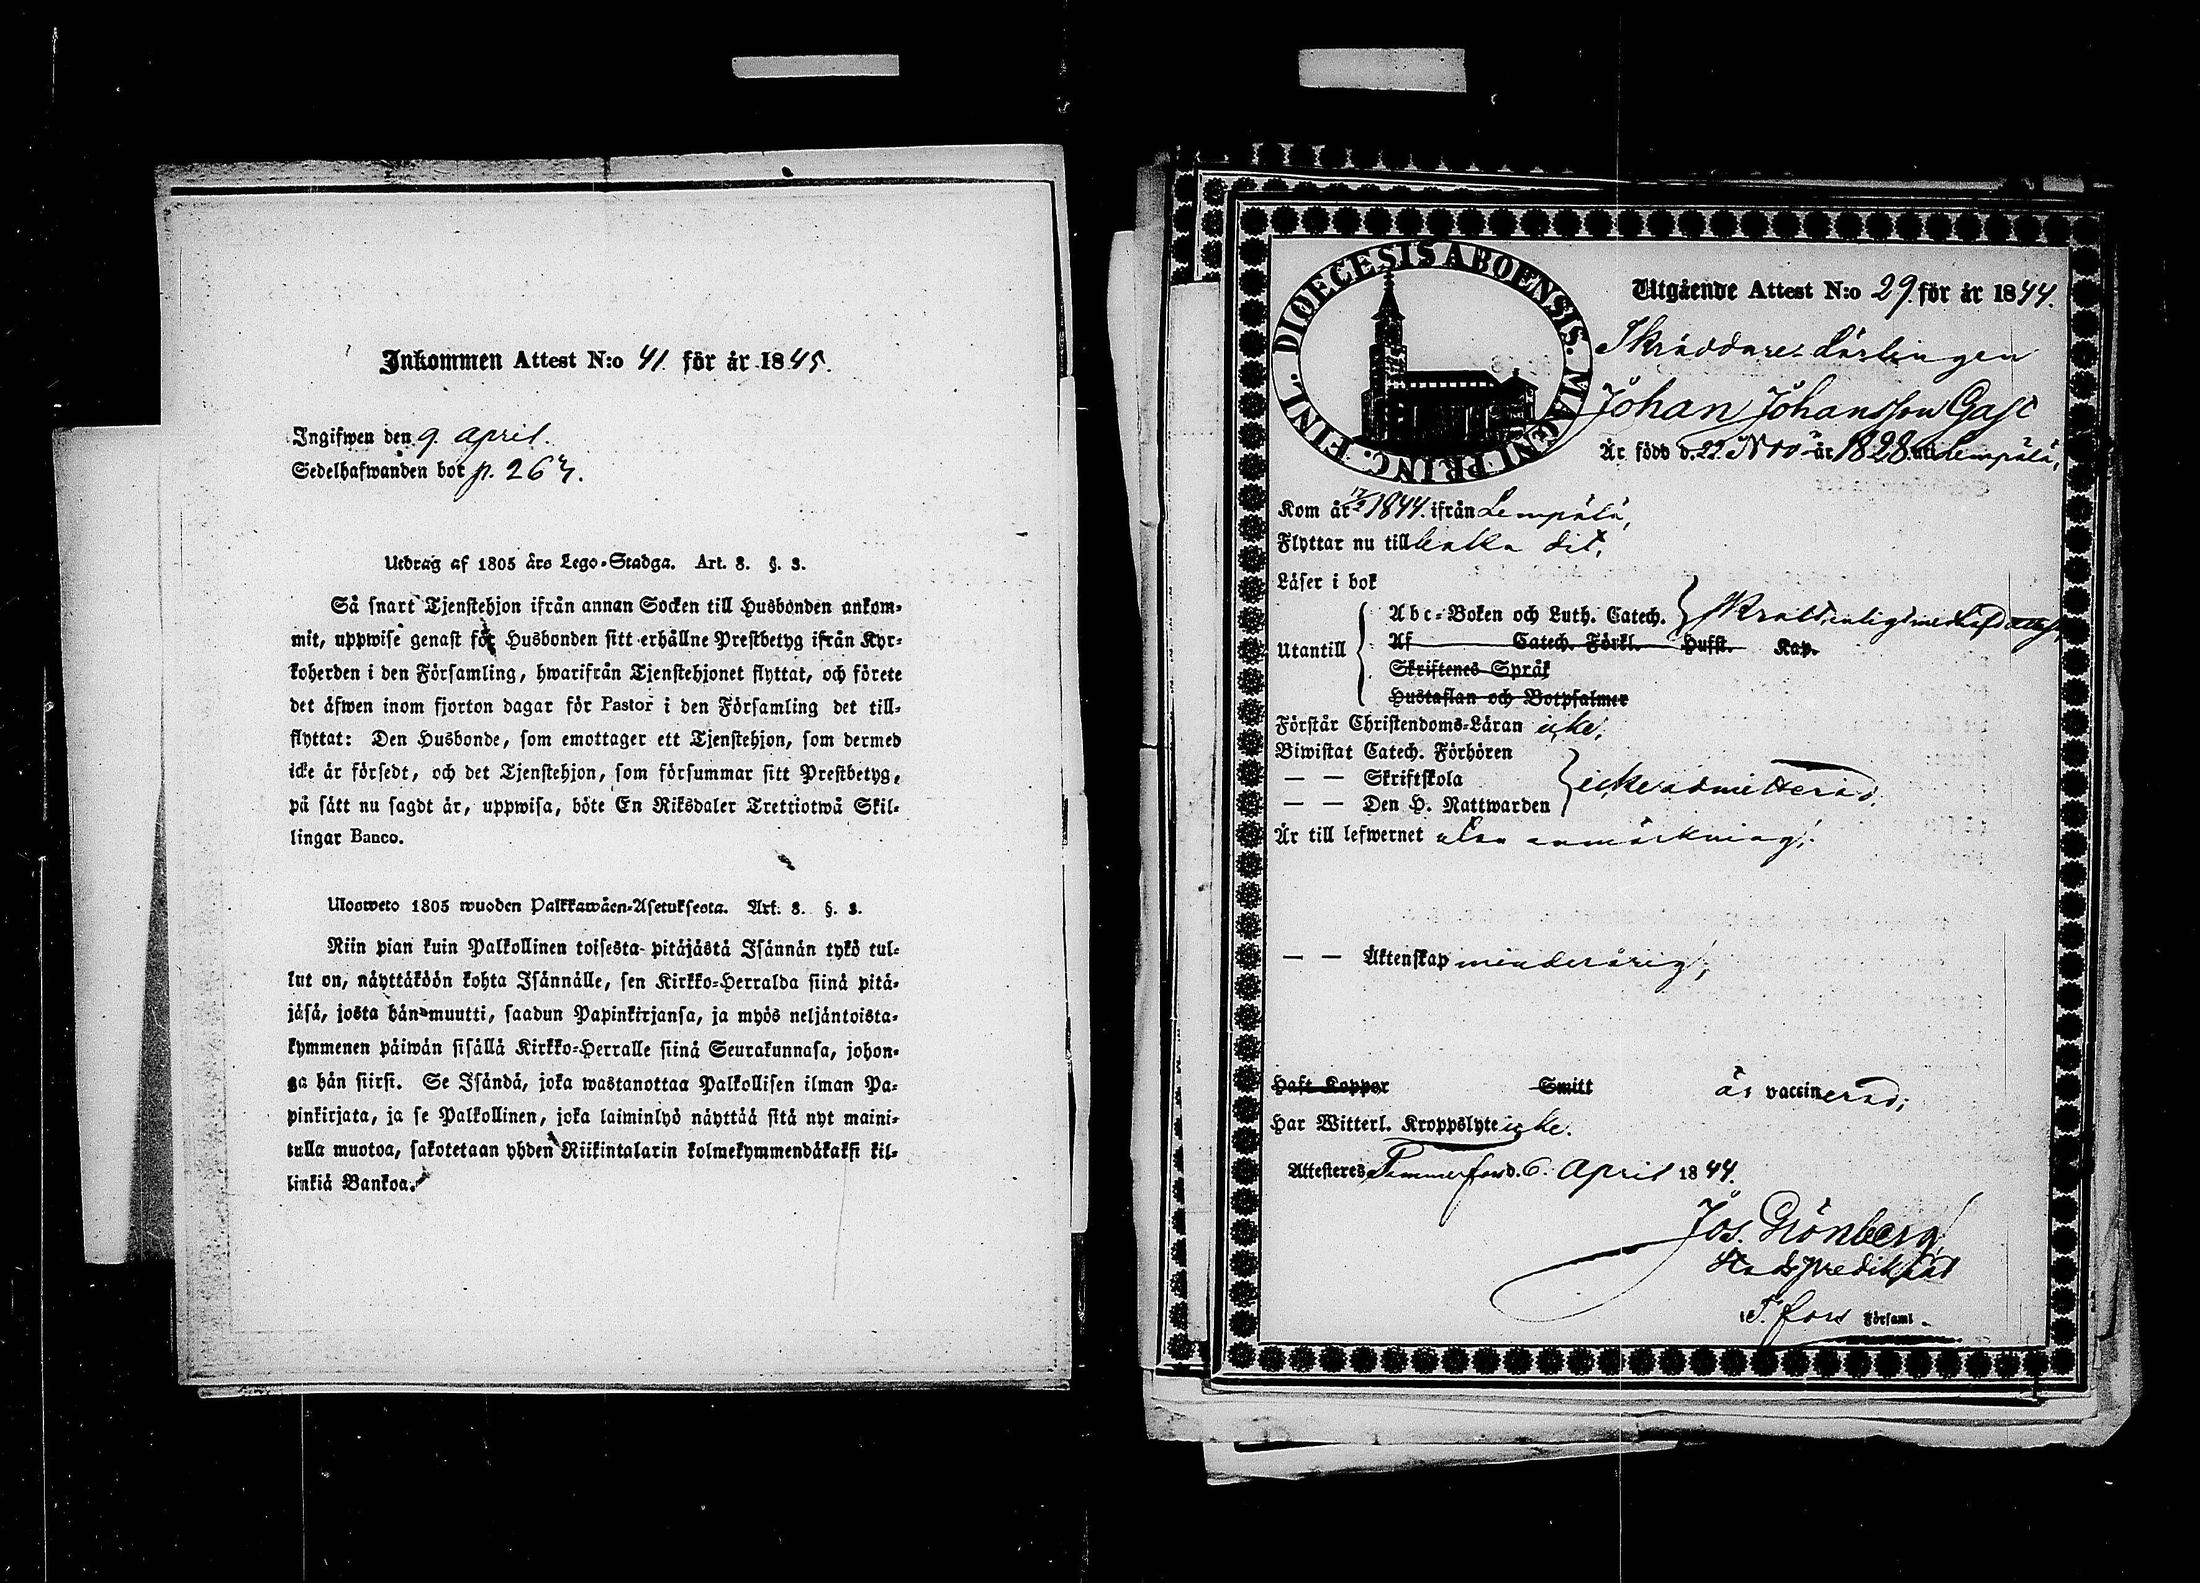 Inkommen Attest N:o 41 för år 1845.
Ingifwen den 9 april.
Sedelhafwanden bor p. 267.
Utdrag af 1805 års Lego-Stadga. Art. 8. §. 3.
Så snart Tjenstehjon ifrån annan Socken till Husbonden ankom-
mit, uppwise genast för Husbonden sitt erhållne Prestbetyg ifrån Kyr-
koherden i den Församling, hwarifrån Tjenstehjonet flyttat, och förete
det äfwen inom fjorton dagar för Pastor i den Församling det till-
flyttat: Den Husbonde, som emottager ett Tjenstehjon, som dermed
icke är försedt, och det Tjenstehjon, som försummar sitt Prestbetyg,
på sätt nu sagdt är, uppwisa, böte En Riksdaler Trettiotwå Skil-
lingar Banco.
Ulosweto 1805 wuoden Palkkawäen-Asetuksesta. Art. 8. §. 3.
Niin pian kuin Palkollinen toisesta pitäjästä Isännän tykö tul-
lut on, näyttäköön kohta Isännälle, sen Kirkko-Herralda siinä pitä-
jäsä, josta hän muutti, saadun Papinkirjansa, ja myös neljäntoista-
kymmenen päiwän sisällä Kirkko-Herralle siinä Seurakunnasa, johon-
ga hän siirsi. Se Isändä, joka wastanottaa Palkollisen ilman Pa-
pinkirjata, ja se Palkollinen, joka laiminlyö näyttää sitä nyt maini-
tulla muotoa, sakotetaan yhden Riikintalarin kolmekymmendäkaksi kil-
linkiä Bankoa.
DIOECESIS ABOENSIS. MAGNI PRINC. FINL.
Utgående Attest N:o 29 för år 1844.
Skräddare Lärlingen
Johan Johansson Gast
Är född d. 22 Nov. år 1828 uti Lempälä,
Kom år 1844. ifrån Lempälä,
Flyttar nu till baka dit.
Läser i bok
Utantill
Abc-Boken och Luth. Catech.
Af Catech. Förkl. Husst. Kap.
Skriftenes Språk
Hustaflan och Botpsalmer
Förstår Christendoms-Läran icke;
Biwistat Catech. Förhören
— — Skriftskola
— — Den H. Nattwarden
icke admitterad.
Är till lefwernet utan anmärkning;
— — Äktenskap minderårig;
Haft Koppor Smitt är vaccinerad;
Har Witterl. Kroppslyte icke.
Attesteres Tammerfors d. 6. April 1844.
Jos. Grönberg
Stadspredikant
i T.fors Församl.